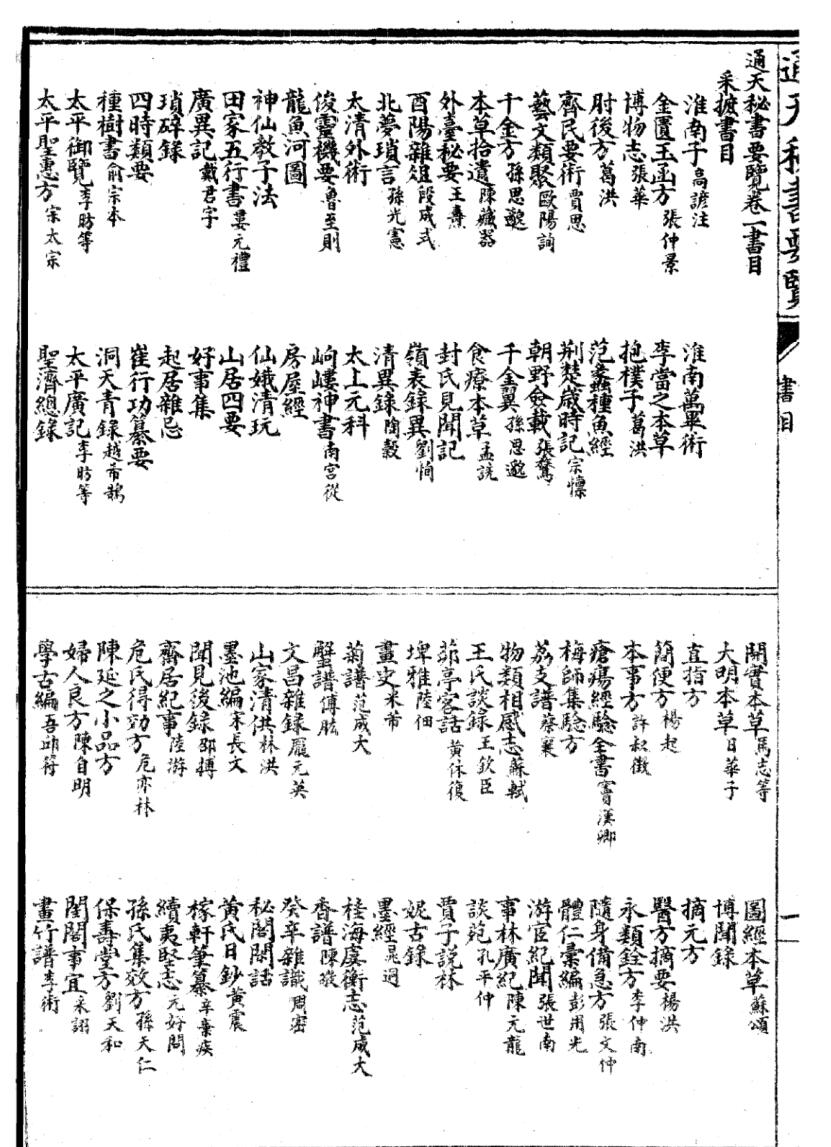 通天秘書要覽 書目 一
通天秘書要覽卷一書目
采摭書目
淮南子 高誘注 淮南萬畢術
金匱玉函方 張仲景 李當之本草
博物志 張華 抱樸子 葛洪
肘後方 葛洪 范蠡種魚經
齊民要術 賈思 荆楚歲時記 宗懍
藝文類聚 歐陽詢 朝野僉載 張鷟
千金方 孫思邈 千金翼 孫思邈
本草拾遺 陳藏器 食療本草 孟詵
外臺秘要 王燾 封氏見聞記
酉陽雜俎 段成式 嶺表錄異 劉恂
北夢瑣言 孫光憲 清異錄 陶穀
太清外術 太上元科
俊靈機要 魯至則 岣嶁神書 南宮從
龍魚河圖 房屋經
神仙教子法 仙娥清玩
田家五行書 婁元禮 山居四要
廣異記 戴君字 好事集
瑣碎錄 起居雜忌
四時類要 崔行功纂要
種樹書 俞宗本 洞天青錄 越希鵠
太平御覽 李昉等 太平廣記 李昉等
太平聖惠方 宋太宗 聖濟總錄
開寶本草 馬志等 圖經本草 蘇頌
大明本草 日華子 博聞錄
直指方 摘元方
簡便方 楊起 醫方摘要 楊洪
本事方 許叔微 永類鈐方 李仲南
瘡瘍經驗全書 竇漢卿 隨身備急方 張文仲
梅師集驗方 體仁彙編 彭用光
荔支譜 蔡襄 游宦紀聞 張世南
物類相感志 蘇軾 事林廣紀 陳元龍
王氏談錄 王欽臣 談苑 孔平仲
茆亭客話 黃休復 賈子說林
埤雅 陸佃 妮古錄
畫史 米芾 墨經 晁迥
菊譜 范成大 桂海虞衡志 范成大
蟹譜 傅肱 香譜 陳敬
文昌雜錄 龐元英 癸辛雜識 周密
山家清供 林洪 秘閣閑話
墨池編 朱長文 黃氏日鈔 黃震
聞見後錄 邵博 稼軒筆纂 辛棄疾
齋居紀事 陸游 續夷堅志 元好問
危氏得効方 危亦林 孫氏集效方 孫天仁
陳延之小品方 保壽堂方 劉天和
婦人良方 陳自明 閨閣事宜 采詡
學古編 吾邱符 畫竹譜 李衎